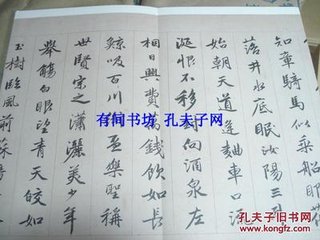 知章騎馬似乘船眼花
落井水底眠汝陽三
始朝天道逢麴車口流
涎恨不移封向酒泉左
相日興費萬錢飲如長
鯨吸百川銜盃樂聖稱
世賢宗之瀟灑美少年
舉觴白眼望青天皎如
玉樹臨風前蘇晉
有间书坊 孔夫子网